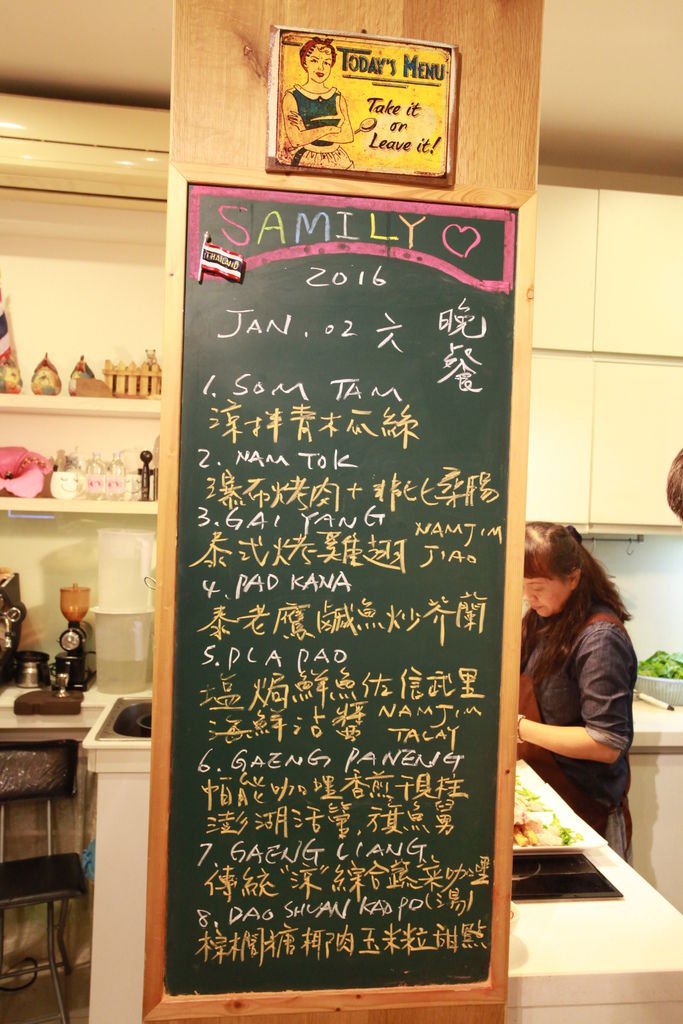 TODAY'S MENU
Take it
or
Leave it!
SAMILY
THAILAND
2016
JAN. 02 六 晚餐
1. SOM TAM
涼拌青木瓜絲
2. NAM TOK
瀑布烤肉+非比桑腸
3. GAI YANG
泰式烤雞翅 NAMJIM JIAO
4. PAD KANA
泰老鷹鹹魚炒芥蘭
5. PLA PAO
塩焗鮮魚佐信武里
海鮮沾醬 NAMJIM TALAY
6. GAENG PANENG
帕能咖哩香煎干貝柱
澎湖活管,頂魚舅
7. GAENG LIANG
傳統"涼"綜合蔬菜咖哩
8. DAO SHUAN KAOPO (湯)
棕櫚糖椰肉玉米粒甜點